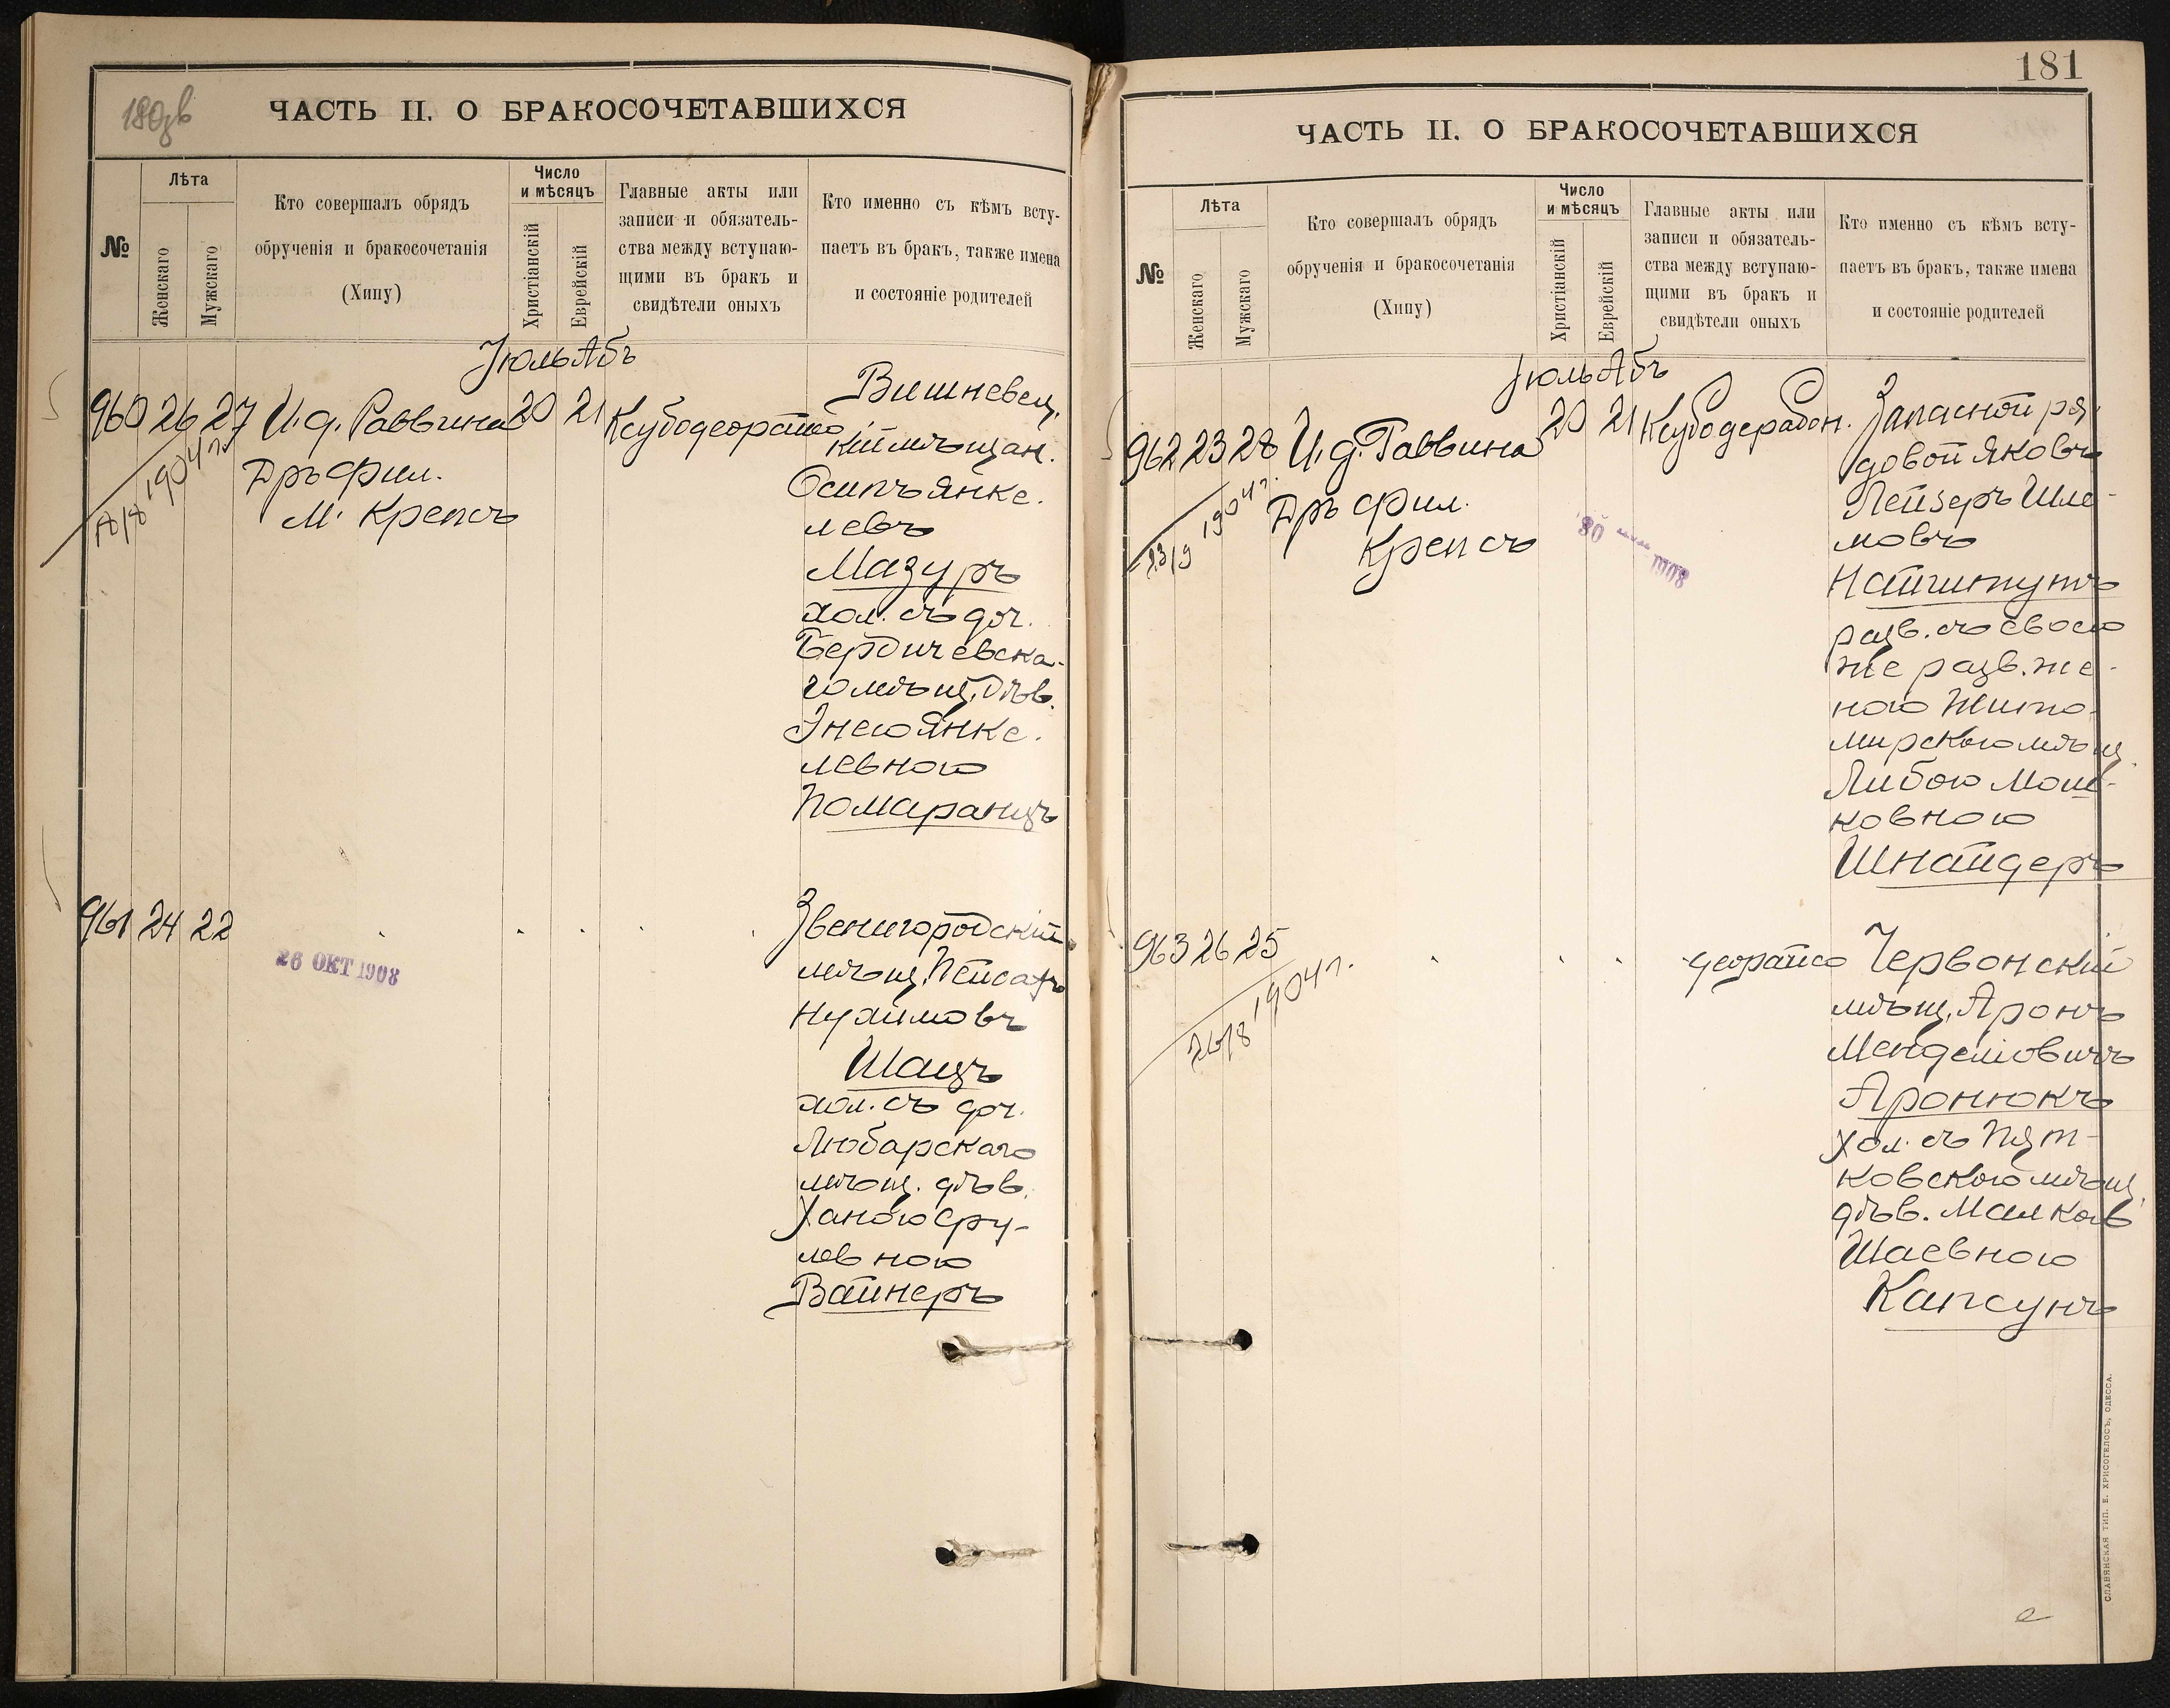 180зв
ЧАСТЬ II. О БРАКОСОЧЕТАВШИХСЯ
№
Лѣта
Женскаго
Мужскаго
Кто совершалъ обрядъ
обрученія и бракосочетанія
(Хипу)
Число
и мѣсяцъ
Христіанскій
Еврейскій
Главные акты или
записи и обязатель-
ства между вступаю-
щими въ бракъ и
свидѣтели оныхъ
Кто именно съ кѣмъ всту-
паетъ въ бракъ, также имена
и состояніе родителей
Іюль Абъ
960 26 27 И. д. Раввина 20 21
18/8 1904 г.
Дръ Фил.
М. Крепсъ
Вишневец.
кій мѣщан.
Осипъ Янке.
левъ
Мазуръ
хол. съ доч.
Бердичевска-
го мѣщ. дѣв.
Энею Янке.
левною
Помаранцъ
961 24 22
26 ОКТ 1908
Звенигородскій
мѣщ. Пейсахъ
Нухимовъ
Шацъ
хол. съ доч.
Любарскаго
мѣщ. дѣв.
Ханою Сру-
левною
Вайнеръ
181
ЧАСТЬ II. О БРАКОСОЧЕТАВШИХСЯ
№
Лѣта
Женскаго
Мужскаго
Кто совершалъ обрядъ
обрученія и бракосочетанія
(Хипу)
Число
и мѣсяцъ
Христіанскій
Еврейскій
Главные акты или
записи и обязатель-
ства между вступаю-
щими въ бракъ и
свидѣтели оныхъ
Кто именно съ кѣмъ всту-
паетъ въ бракъ, также имена
и состояніе родителей
Іюль Абъ
962 23 28 И. д. Раввина 20 21
13/9 1904 г.
Дръ Фил.
Крепсъ
1908
Запасной ря-
довой Яковъ
Лейзеръ Шле-
мовъ
Найшутъ
разв. съ своею
же разв. же-
ною Жито-
мирскою мѣщ.
Либою Мош-
ковною
Шнайдеръ
963 26 25
26/8 1904 г.
Червонскій
мѣщ. Аронъ
Менделіовичъ
Аронюкъ
хол. съ Пят-
ковскою мѣщ.
дѣв. Малкою
Шаевною
Капсунъ
СЛАВЯНСКАЯ ТИП. Е. ХРИСОГЕЛОСЪ, ОДЕССА.